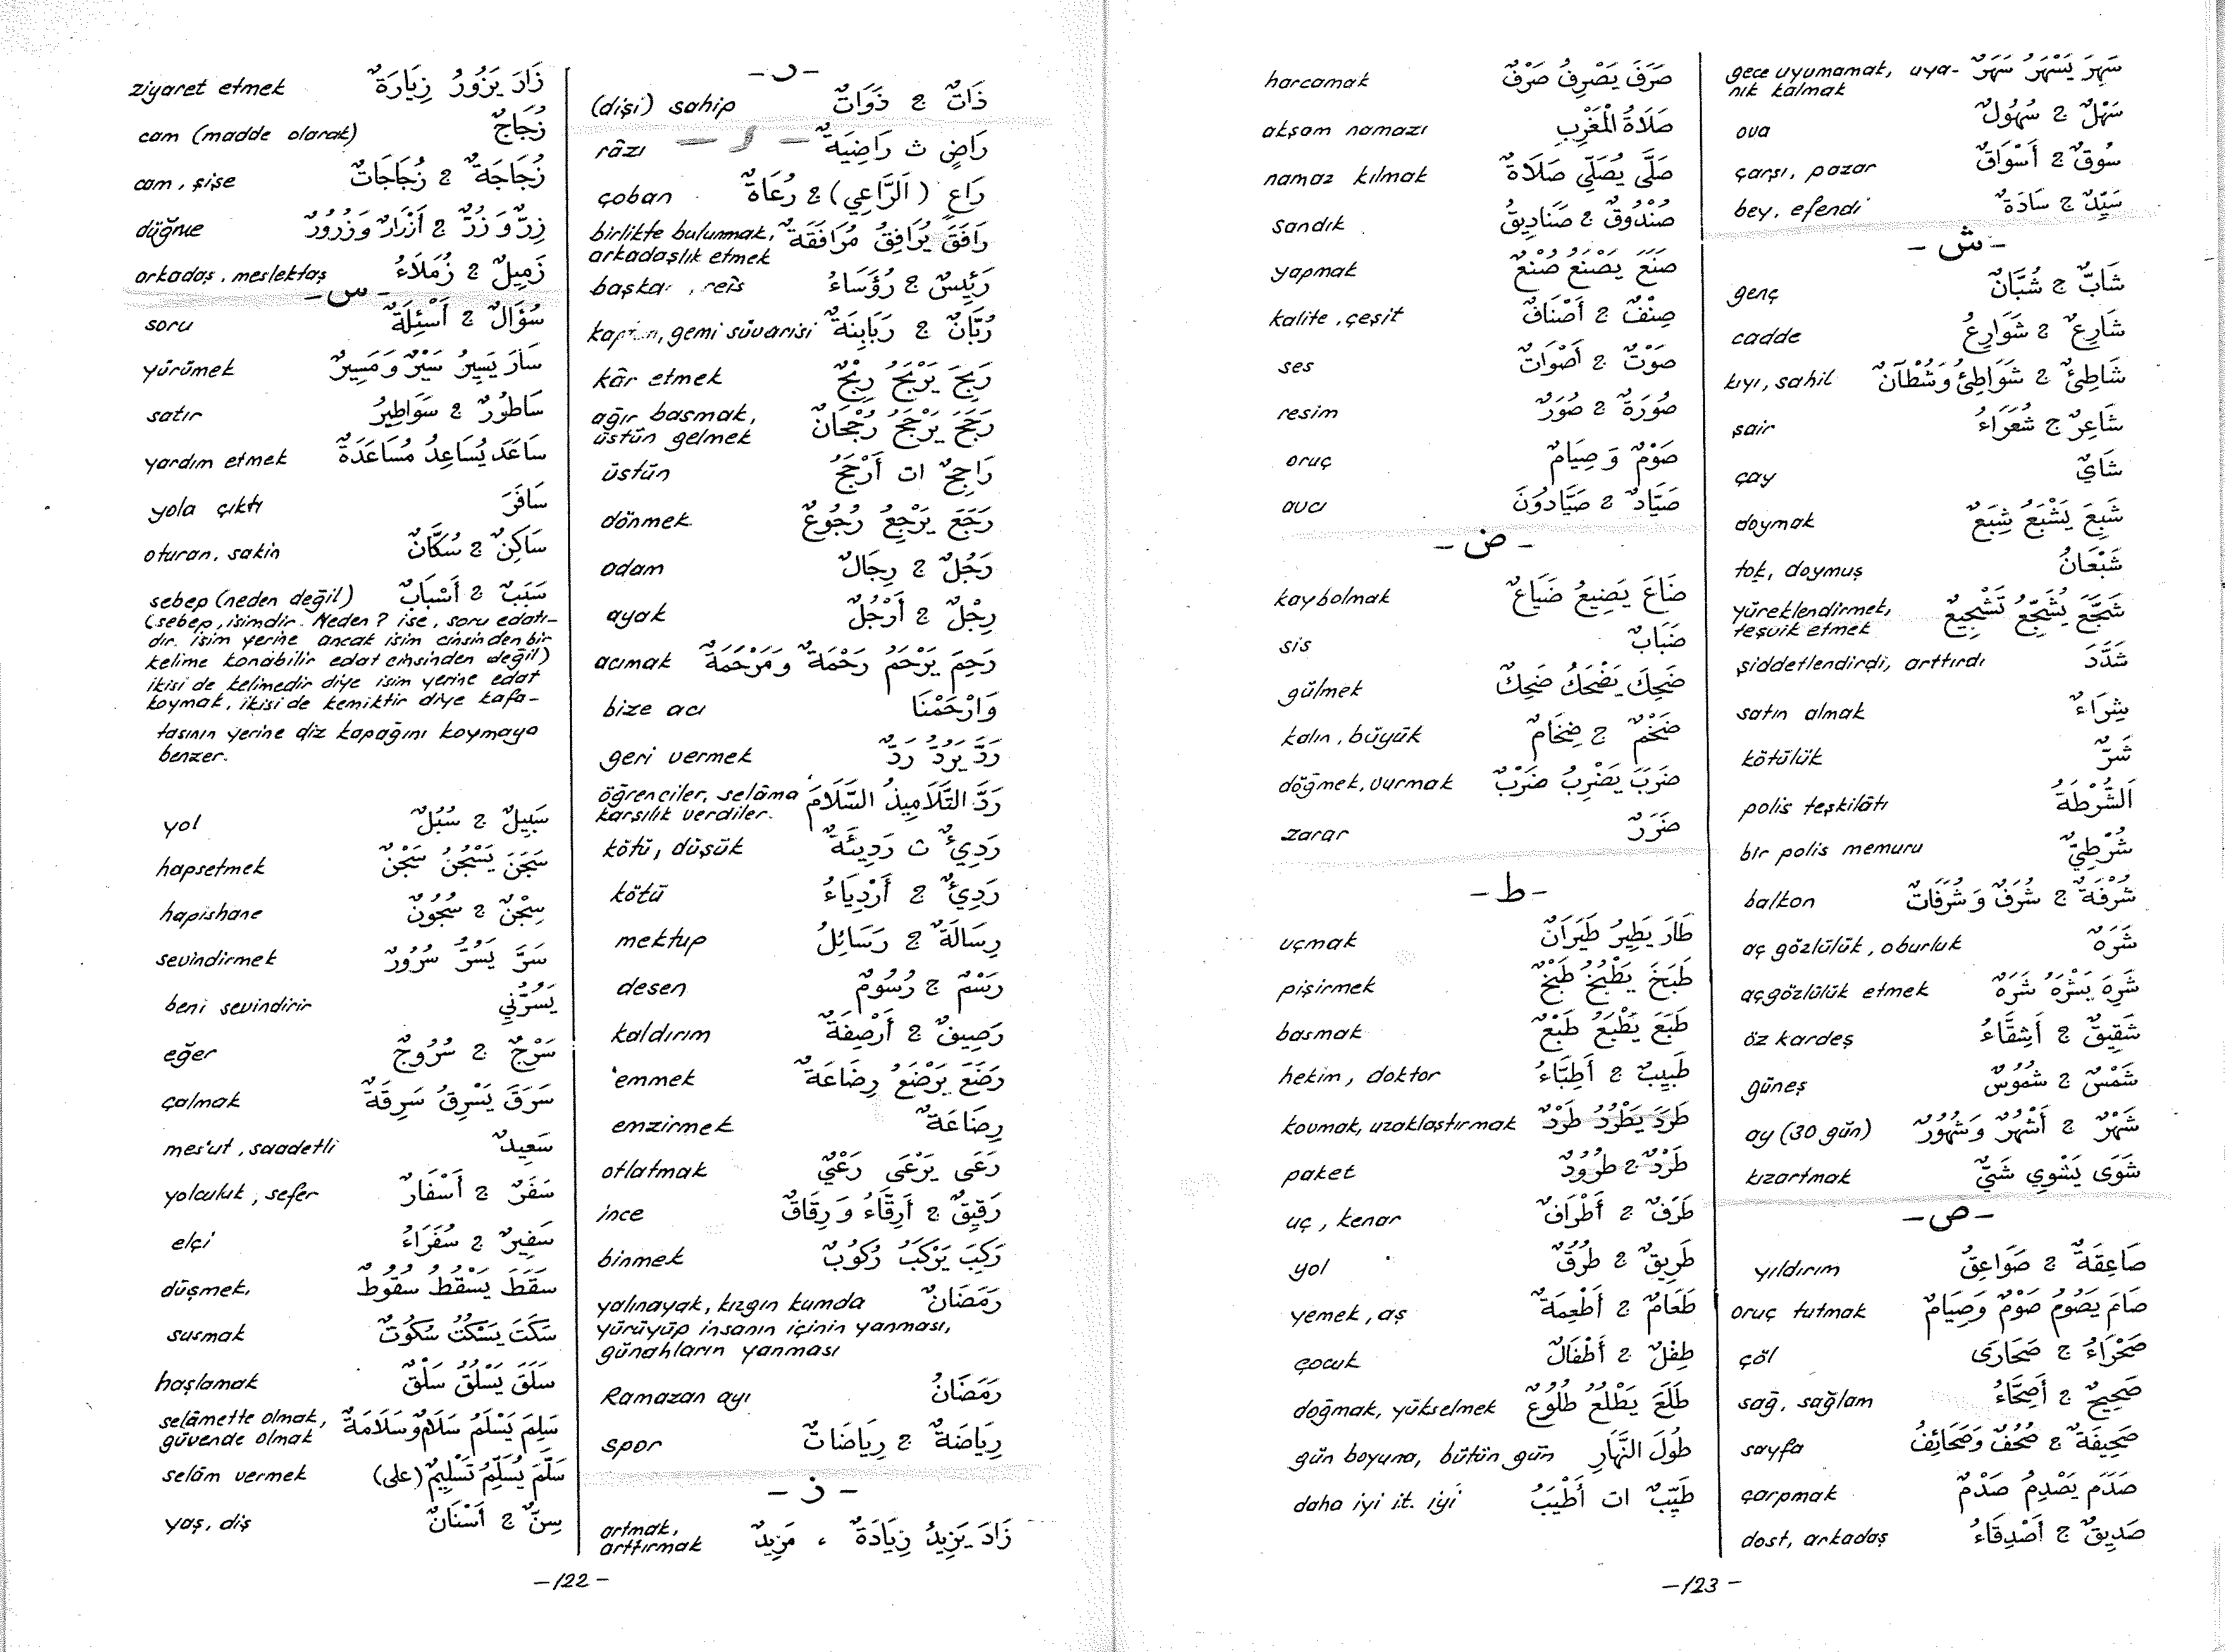 - ذ -
(dişi) sahip ذَاتٌ ج ذَوَاتٌ
- ر -
râzı رَاضٍ ث رَاضِيَةٌ
çoban رَاعٍ (اَلرَّاعِي) ج رُعَاةٌ
birlikte bulunmak, رَافَقَ يُرَافِقُ مُرَافَقَةٌ
arkadaşlık etmek
reis رَئِيسٌ ج رُؤَسَاءُ
gemi süvarisi رُبَّانٌ ج رَبَابِنَةٌ
kâr etmek رَبِحَ يَرْبَحُ رِبْحٌ
ağır basmak, رَجَحَ يَرْجَحُ رُجْحَانٌ
üstün gelmek
üstün رَاجِحٌ ات أَرْجَحُ
dönmek رَجَعَ يَرْجِعُ رُجُوعٌ
adam رَجُلٌ ج رِجَالٌ
ayak رِجْلٌ ج أَرْجُلٌ
acımak رَحِمَ يَرْحَمُ رَحْمَةٌ وَمَرْحَمَةٌ
bize acı وَارْحَمْنَا
geri vermek رَدَّ يَرُدُّ رَدٌّ
öğrenciler, selâma رَدَّ التَّلَامِيذُ السَّلَامَ
karşılık verdiler.
kötü, düşük رَدِيءٌ ث رَدِيئَةٌ
kötü رَدِيءٌ ج أَرْدِيَاءُ
mektup رِسَالَةٌ ج رَسَائِلُ
desen رَسْمٌ ج رُسُومٌ
kaldırım رَصِيفٌ ج أَرْصِفَةٌ
emmek رَضَعَ يَرْضَعُ رِضَاعَةٌ
emzirmek رِضَاعَةٌ
otlatmak رَعَى يَرْعَى رَعْيٌ
ince رَقِيقٌ ج أَرِقَّاءُ وَ رِقَاقٌ
binmek رَكِبَ يَرْكَبُ رُكُوبٌ
yalınayak, kızgın kumda رَمَضَانٌ
yürüyüp insanın içinin yanması,
günahların yanması
Ramazan ayı رَمَضَانُ
spor رِيَاضَةٌ ج رِيَاضَاتٌ
- ز -
artmak, زَادَ يَزِيدُ زِيَادَةٌ ، مَزِيدٌ
arttırmak
ziyaret etmek زَارَ يَزُورُ زِيَارَةٌ
cam (madde olarak) زُجَاجٌ
cam, şişe زُجَاجَةٌ ج زُجَاجَاتٌ
düğme زِرٌّ وَ زُرٌّ ج أَزْرَارٌ وَزُرُورٌ
arkadaş, meslektaş زَمِيلٌ ج زُمَلَاءُ
- س -
soru سُؤَالٌ ج أَسْئِلَةٌ
yürümek سَارَ يَسِيرُ سَيْرٌ وَمَسِيرٌ
satır سَاطُورٌ ج سَوَاطِيرُ
yardım etmek سَاعَدَ يُسَاعِدُ مُسَاعَدَةٌ
yola çıktı سَافَرَ
oturan, sakin سَاكِنٌ ج سُكَّانٌ
sebep (neden değil) سَبَبٌ ج أَسْبَابٌ
(sebep, isimdir. Neden? ise, soru edatı-
dır. isim yerine ancak isim cinsinden bir
kelime konabilir edat cinsinden değil)
ikisi de kelimedir diye isim yerine edat
koymak, ikisi de kemiktir diye kafa-
tasının yerine diz kapağını koymaya
benzer.
yol سَبِيلٌ ج سُبُلٌ
hapsetmek سَجَنَ يَسْجُنُ سَجْنٌ
hapishane سِجْنٌ ج سُجُونٌ
sevindirmek سَرَّ يَسُرُّ سُرُورٌ
beni sevindirir يَسُرُّنِي
eğer سَرْجٌ ج سُرُوجٌ
çalmak سَرَقَ يَسْرِقُ سَرِقَةٌ
mes'ut, saadetli سَعِيدٌ
yolculuk, sefer سَفَرٌ ج أَسْفَارٌ
elçi سَفِيرٌ ج سُفَرَاءُ
düşmek, سَقَطَ يَسْقُطُ سُقُوطٌ
susmak سَكَتَ يَسْكُتُ سُكُوتٌ
haşlamak سَلَقَ يَسْلُقُ سَلْقٌ
selâmette olmak, سَلِمَ يَسْلَمُ سَلَامٌ وَسَلَامَةٌ
güvende olmak
selâm vermek سَلَّمَ يُسَلِّمُ تَسْلِيمٌ (على)
yaş, diş سِنٌّ ج أَسْنَانٌ
-122-
gece uyumamak, uya- سَهِرَ يَسْهَرُ سَهَرٌ
nık kalmak
ova سَهْلٌ ج سُهُولٌ
çarşı, pazar سُوقٌ ج أَسْوَاقٌ
bey, efendi سَيِّدٌ ج سَادَةٌ
- ش -
genç شَابٌّ ج شُبَّانٌ
cadde شَارِعٌ ج شَوَارِعُ
kıyı, sahil شَاطِئٌ ج شَوَاطِئُ وَشُطْآنٌ
şair شَاعِرٌ ج شُعَرَاءُ
çay شَايٌ
doymak شَبِعَ يَشْبَعُ شِبَعٌ
tok, doymuş شَبْعَانُ
yüreklendirmek, شَجَّعَ يُشَجِّعُ تَشْجِيعٌ
teşvik etmek
şiddetlendirdi, arttırdı شَدَّدَ
satın almak شِرَاءٌ
kötülük شَرٌّ
polis teşkilâtı اَلشُّرْطَةُ
bir polis memuru شُرْطِيٌّ
balkon شُرْفَةٌ ج شُرَفٌ وَ شُرُفَاتٌ
aç gözlülük, oburluk شَرَهٌ
açgözlülük etmek شَرِهَ يَشْرَهُ شَرَهٌ
öz kardeş شَقِيقٌ ج أَشِقَّاءُ
güneş شَمْسٌ ج شُمُوسٌ
ay (30 gün) شَهْرٌ ج أَشْهُرٌ وَشُهُورٌ
kızartmak شَوَى يَشْوِي شَيٌّ
- ص -
yıldırım صَاعِقَةٌ ج صَوَاعِقُ
oruç tutmak صَامَ يَصُومُ صَوْمٌ وَصِيَامٌ
çöl صَحْرَاءُ ج صَحَارَى
sağ, sağlam صَحِيحٌ ج أَصِحَّاءُ
sayfa صَحِيفَةٌ ج صُحُفٌ وَصَحَائِفُ
çarpmak صَدَمَ يَصْدِمُ صَدْمٌ
dost, arkadaş صَدِيقٌ ج أَصْدِقَاءُ
harcamak صَرَفَ يَصْرِفُ صَرْفٌ
akşam namazı صَلَاةُ الْمَغْرِبِ
namaz kılmak صَلَّى يُصَلِّي صَلَاةٌ
sandık صُنْدُوقٌ ج صَنَادِيقُ
yapmak صَنَعَ يَصْنَعُ صُنْعٌ
kalite, çeşit صِنْفٌ ج أَصْنَافٌ
ses صَوْتٌ ج أَصْوَاتٌ
resim صُورَةٌ ج صُوَرٌ
oruç صَوْمٌ وَ صِيَامٌ
avcı صَيَّادٌ ج صَيَّادُونَ
- ض -
kaybolmak ضَاعَ يَضِيعُ ضَيَاعٌ
sis ضَبَابٌ
gülmek ضَحِكَ يَضْحَكُ ضَحِكٌ
kalın, büyük ضَخْمٌ ج ضِخَامٌ
döğmek, vurmak ضَرَبَ يَضْرِبُ ضَرْبٌ
zarar ضَرَرٌ
- ط -
uçmak طَارَ يَطِيرُ طَيَرَانٌ
pişirmek طَبَخَ يَطْبُخُ طَبْخٌ
basmak طَبَعَ يَطْبَعُ طَبْعٌ
hekim, doktor طَبِيبٌ ج أَطِبَّاءُ
kovmak, uzaklaştırmak طَرَدَ يَطْرُدُ طَرْدٌ
paket طَرْدٌ ج طُرُودٌ
uç, kenar طَرَفٌ ج أَطْرَافٌ
yol طَرِيقٌ ج طُرُقٌ
yemek, aş طَعَامٌ ج أَطْعِمَةٌ
çocuk طِفْلٌ ج أَطْفَالٌ
doğmak, yükselmek طَلَعَ يَطْلُعُ طُلُوعٌ
gün boyuna, bütün gün طُولَ النَّهَارِ
daha iyi it. iyi طَيِّبٌ ات أَطْيَبُ
-123-